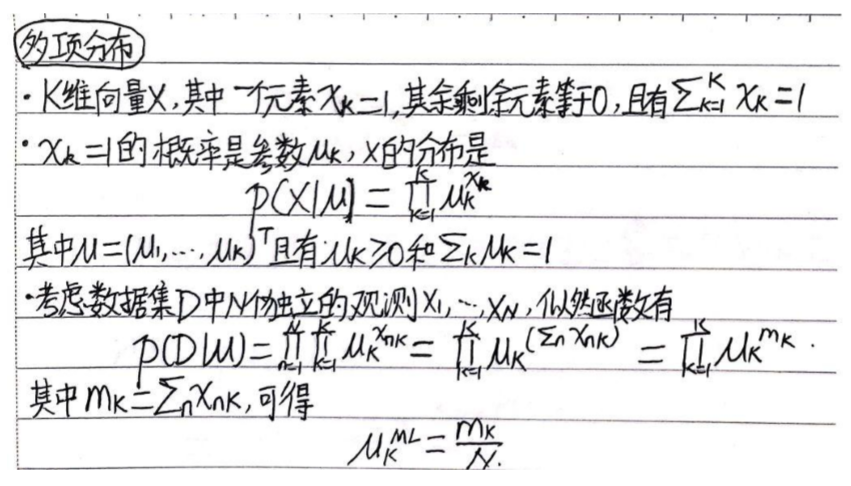 多项分布
· K维向量X,其中一个元素x_k=1,其余剩余元素等于0,且有∑_{k=1}^K x_k=1
· x_k=1的概率是参数μ_k, x的分布是
p(X|μ) = ∏_{k=1}^K μ_k^{x_k}
其中μ=(μ_1,…,μ_K)^T且有μ_k≥0和∑_k μ_k=1
·考虑数据集D中N个独立的观测x_1,…,x_N,似然函数有
p(D|μ)=∏_{n=1}^N ∏_{k=1}^K μ_k^{x_{nk}} = ∏_{k=1}^K μ_k^{(∑_n x_{nk})} = ∏_{k=1}^K μ_k^{m_k}.
其中m_k=∑_n x_{nk},可得
μ_k^{ML}=\frac{m_k}{N}.